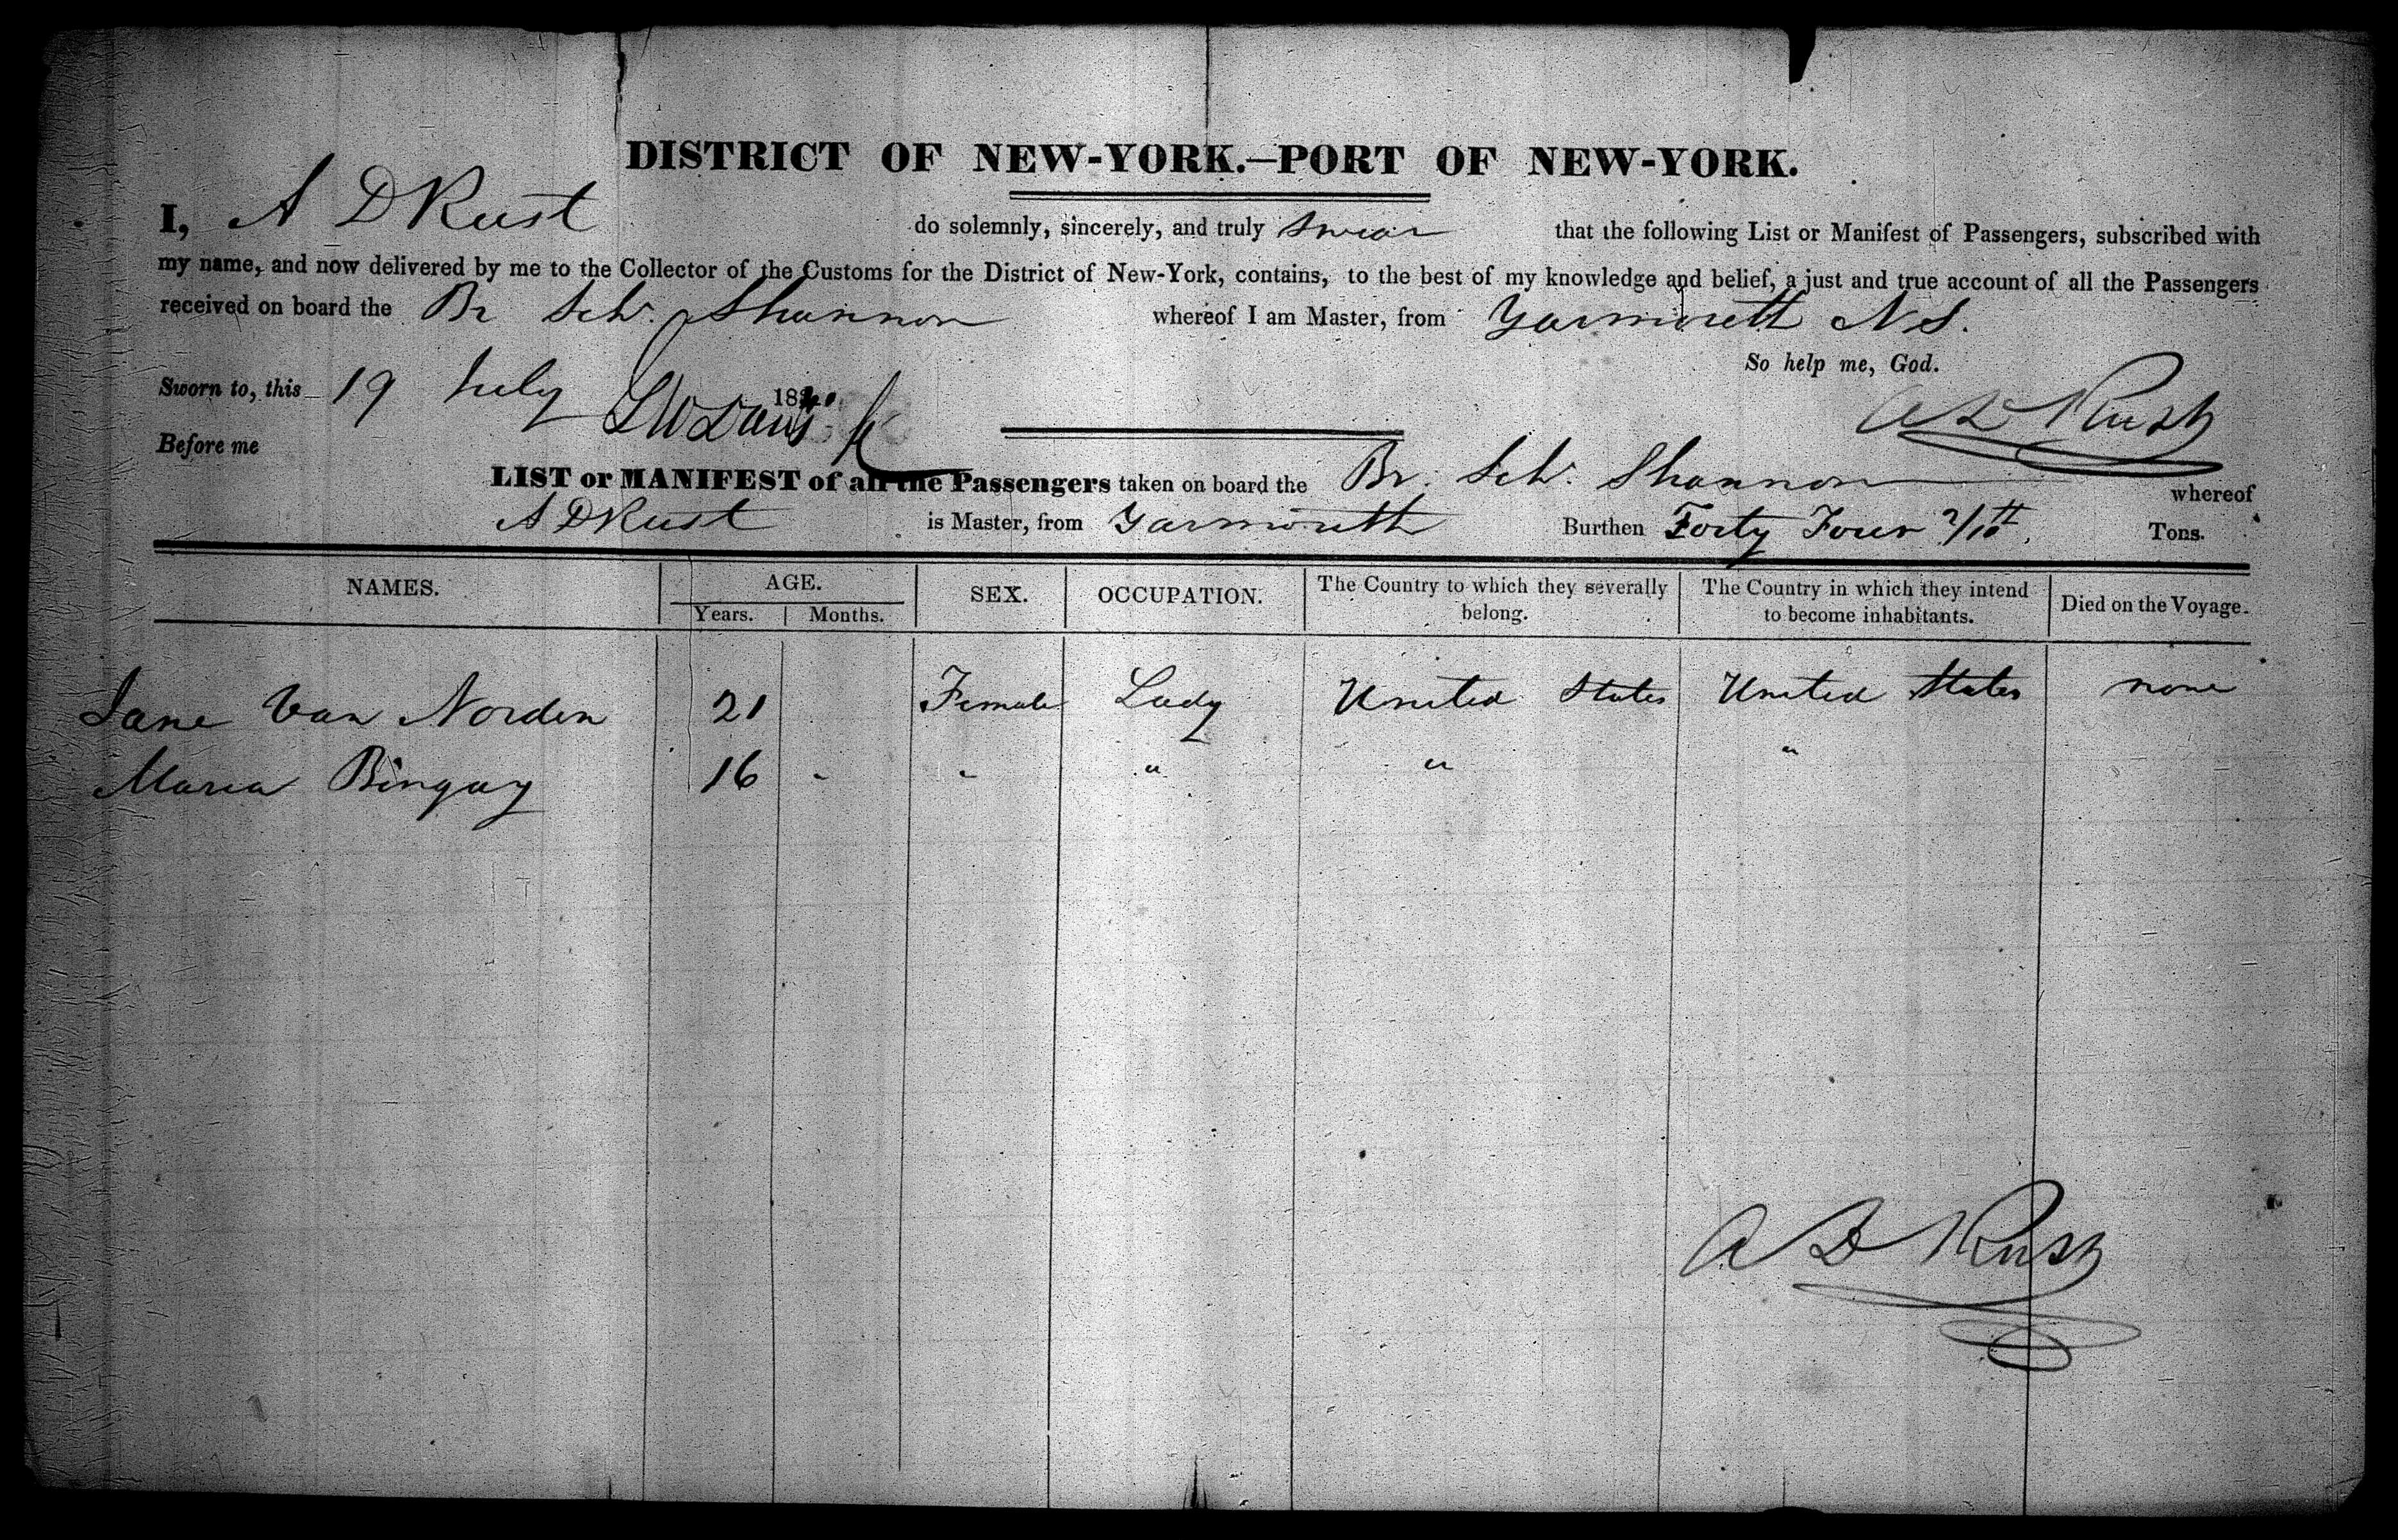 DISTRICT OF NEW-YORK.—PORT OF NEW-YORK.
I, A D Rust do solemnly, sincerely, and truly swear that the following List or Manifest of Passengers, subscribed with
my name, and now delivered by me to the Collector of the Customs for the District of New-York, contains, to the best of my knowledge and belief, a just and true account of all the Passengers
received on board the Br Sch. Shannon whereof I am Master, from Yarmouth N S.
So help me, God.
Sworn to, this 19 July 18
A D Rust
Before me
LIST or MANIFEST of all the Passengers taken on board the Br. Sch. Shannon whereof
A D Rust is Master, from Yarmouth Burthen Forty Four Tons.
NAMES. AGE. SEX. OCCUPATION. The Country to which they severally belong. The Country in which they intend to become inhabitants. Died on the Voyage.
Years. Months.
Jane Van Norden 21 Female Lady United States United States none
Maria Bingay 16 " " " "
A D Rust